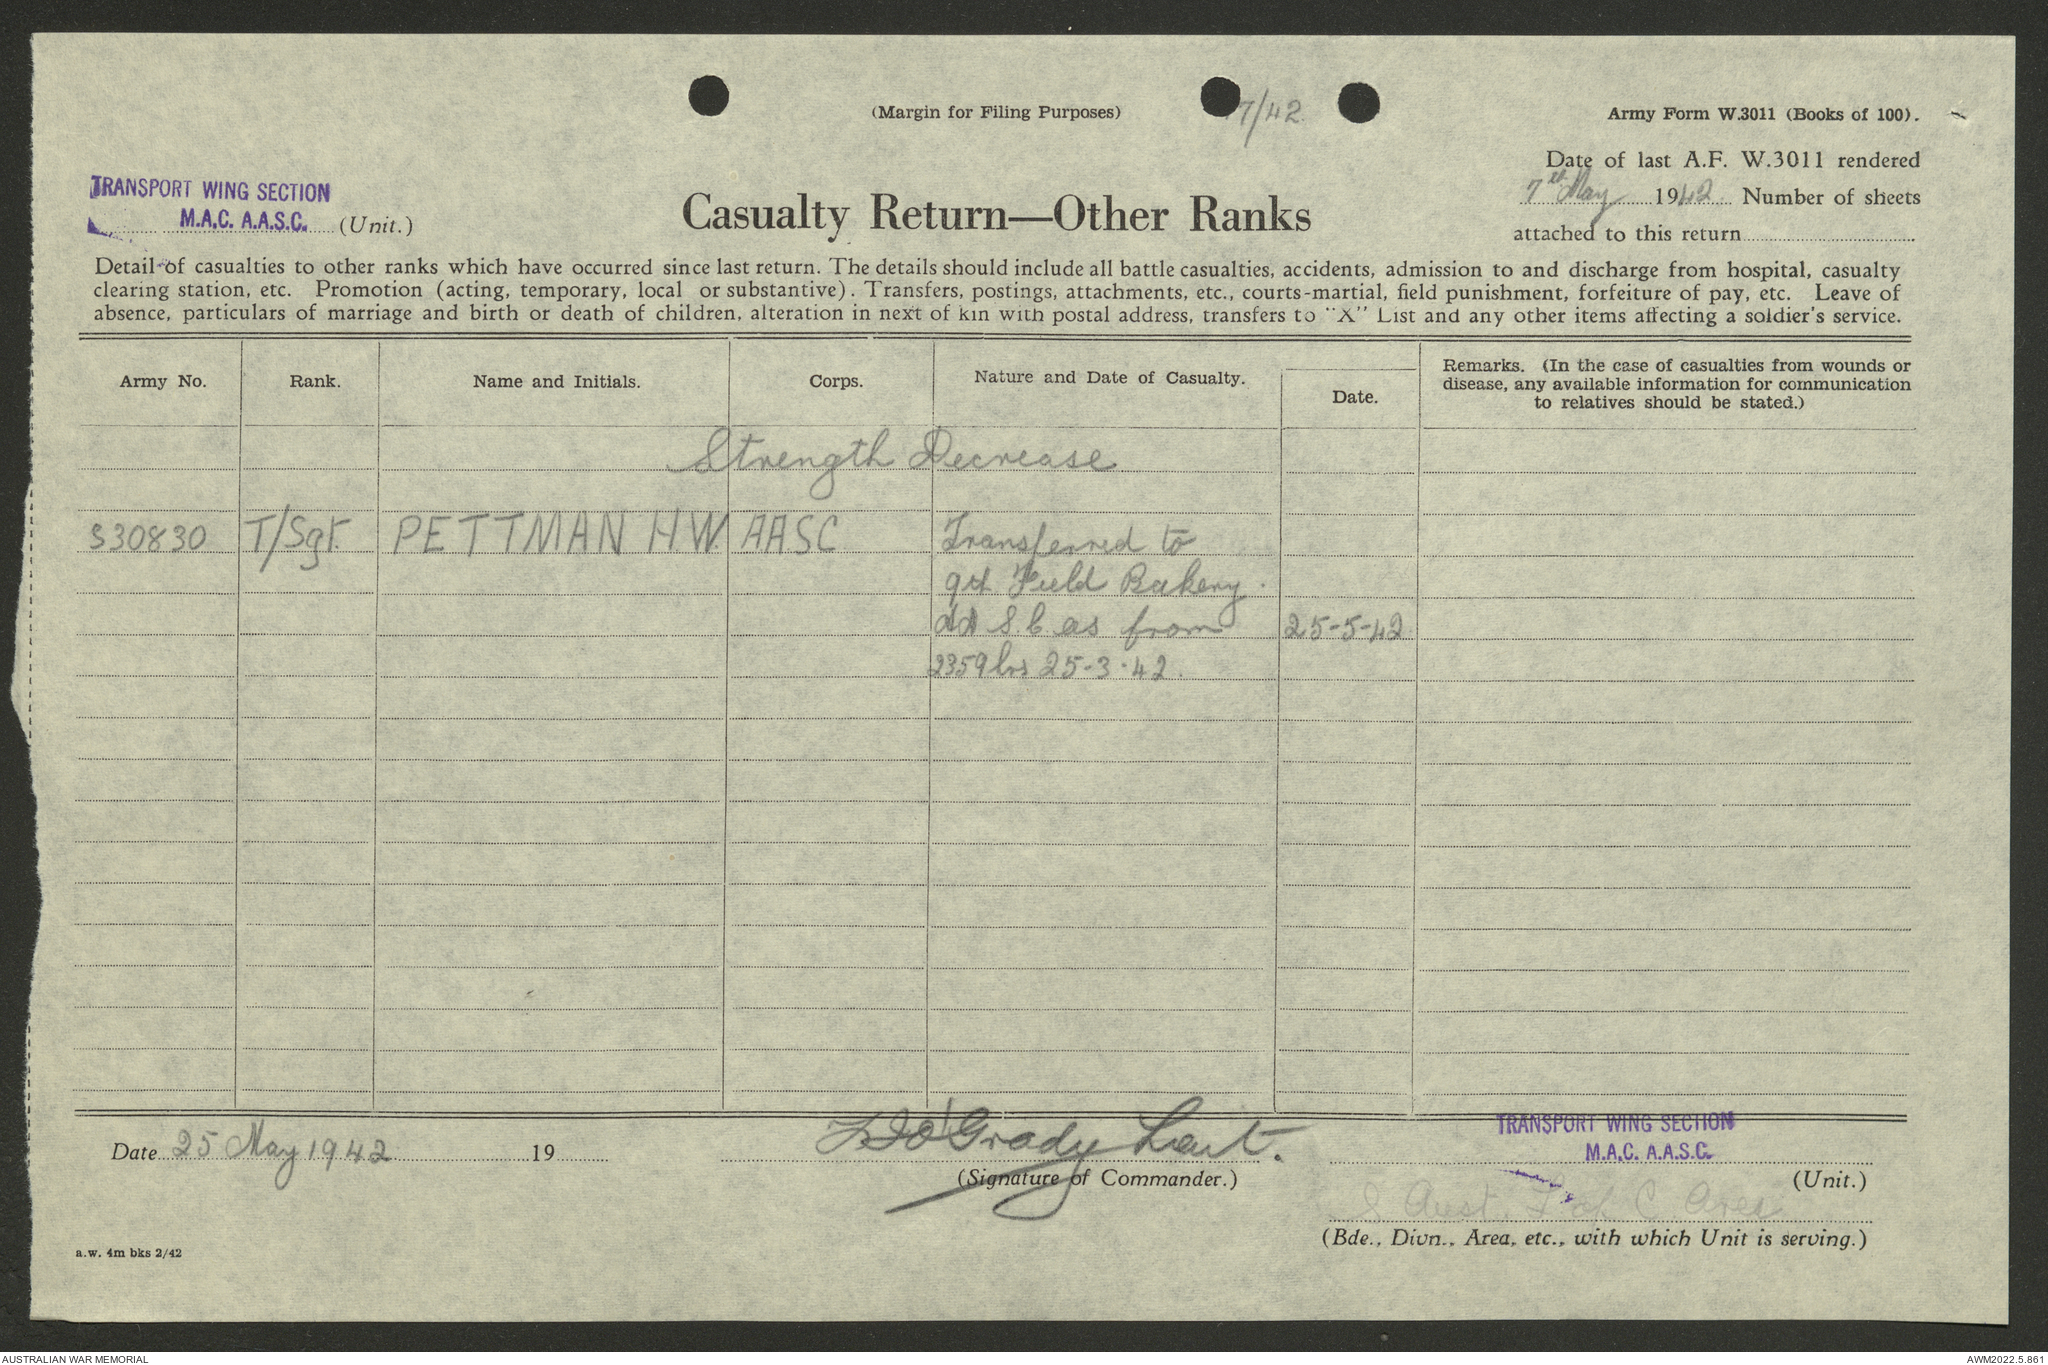 (Margin for Filing Purposes)
7/42
Army Form W.3011 (Books of 100).
Date of last A.F. W.3011 rendered
7th May 1942 Number of sheets
attached to this return
TRANSPORT WING SECTION
M.A.C. A.A.S.C. (Unit.)
Casualty Return—Other Ranks
Detail of casualties to other ranks which have occurred since last return. The details should include all battle casualties, accidents, admission to and discharge from hospital, casualty
clearing station, etc. Promotion (acting, temporary, local or substantive). Transfers, postings, attachments, etc., courts-martial, field punishment, forfeiture of pay, etc. Leave of
absence, particulars of marriage and birth or death of children, alteration in next of kin with postal address, transfers to "X" List and any other items affecting a soldier's service.
Army No. Rank. Name and Initials. Corps. Nature and Date of Casualty. Date. Remarks. (In the case of casualties from wounds or
disease, any available information for communication
to relatives should be stated.)
Strength Decrease
S30830 T/Sgt. PETTMAN H.W. AASC Transferred to
Field Bakery
S.C. as from 25-5-42
2359 hrs 25-3-42.
Date 25 May 1942 19
O'Grady Lieut.
(Signature of Commander.)
TRANSPORT WING SECTION
M.A.C. A.A.S.C.
(Unit.)
S Aust. L of C Area
(Bde., Divn., Area, etc., with which Unit is serving.)
a.w. 4m bks 2/42
AUSTRALIAN WAR MEMORIAL
AWM2022.5.861